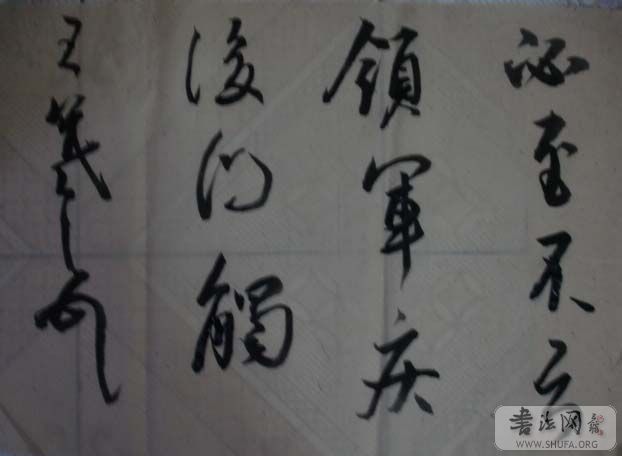 必至不云
領軍疾
後們觸
王羲之
書法网
WWW.SHUFA.ORG